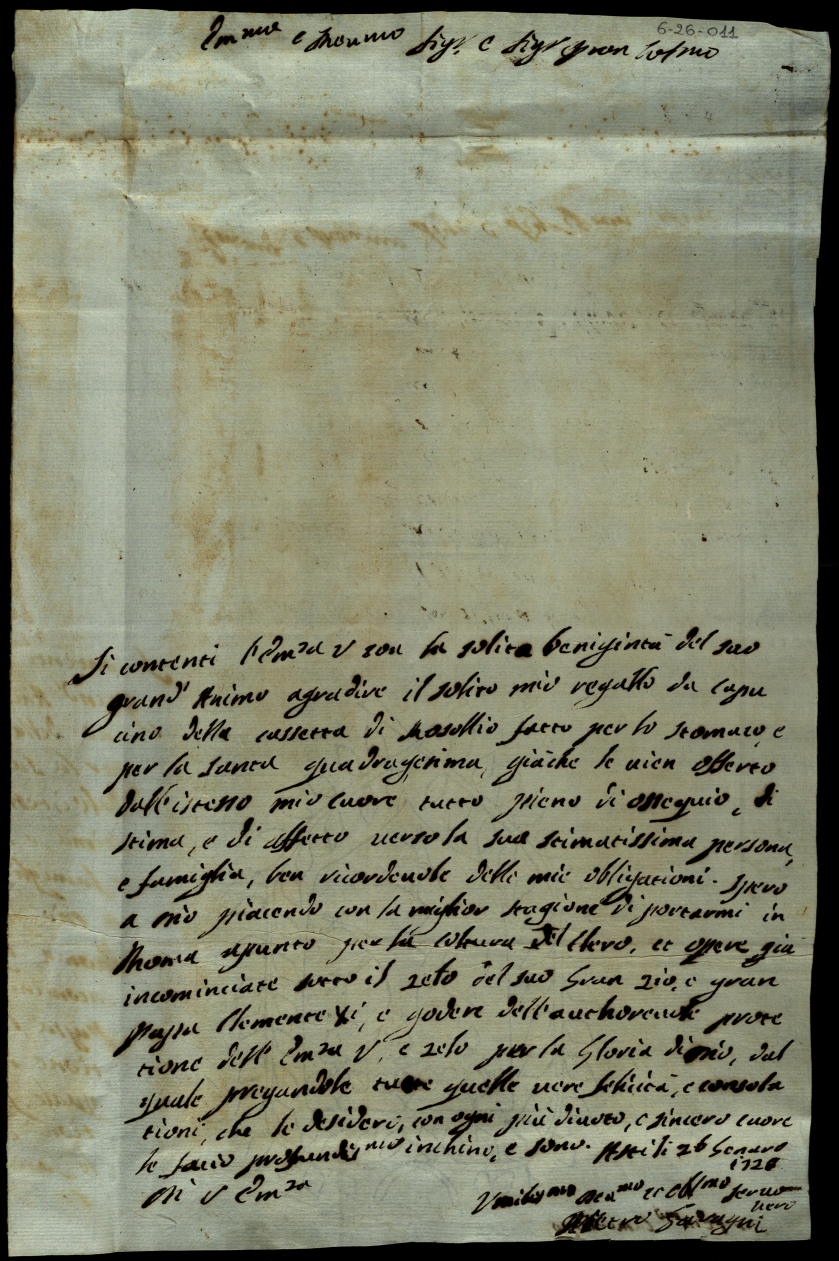 6-26-011
Em.mo e Rev.mo Sig.r e Sig.r Pron Col.mo
Si contenti l'Em.za V con la solita benignità del suo
grand' Animo agradire il solito mio regallo da Capu
cino della cassetta di Rosollio fatto per lo stomaco, e
per la santa quadragesima, giache le vien offerto
dall'istesso mio cuore tutto pieno di ossequio, di
stima, e di affetto verso la sua stimatissima persona,
e famiglia, ben ricordevole delle mie obligationi. Spero
a Dio piacendo con la miglior stagione di portarmi in
Roma apunto per la coltura del Clero, et opere già
incominciate sotto il zelo del suo Gran Zio, e gran
Papa Clemente XI, e godere dell'authorevole prote
tione dell' Em.za V, e zelo per la Gloria di Dio, dal
quale pregandole tutte quelle vere felicità, e consola
tioni, che le desidero, con ogni più divoto, e sincero cuore
le facio profundis.mo inchino, e sono. Asti li 26 Genaro
1726
Di V Em.za
Umilis.mo Dev.mo et Obl.mo servo
vero